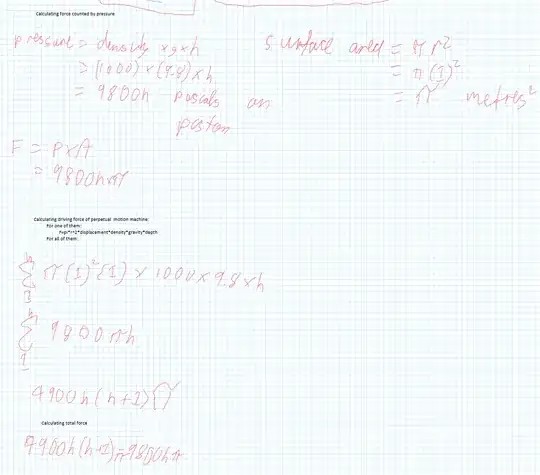 Calculating force counted by pressure
pressure = density × g × h
= (1000) × (9.8) × h
= 9800h pascals on
piston
surface area = π r²
= π (1)²
= π metres²
F = P×A
= 9800hπ
Calculating driving force of perpetual motion machine:
For one of them:
F=pi*r^2*displacement*density*gravity*depth
For all of them:
h
Σ π(1)²(1) × 1000 × 9.8 × h
1
h
Σ 9800πh
1
4900h(h+1)π
Calculating total force
4900h(h+1)π-9800hπ